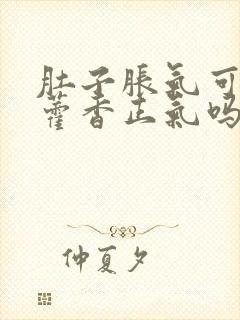 肚子脹氣可
藿香正氣吗
仲夏夕